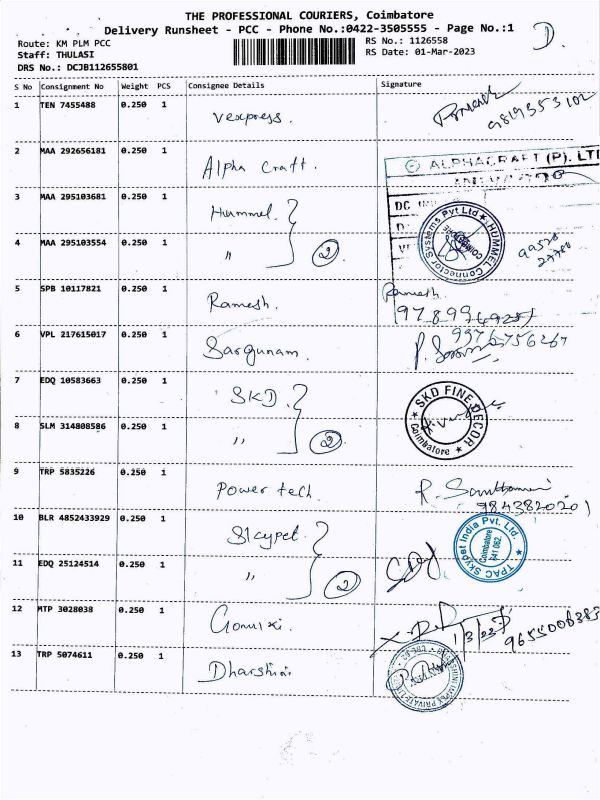 THE PROFESSIONAL COURIERS, Coimbatore
Delivery Runsheet - PCC - Phone No.:0422-3505555 - Page No.:1
D.
Route: KM PLM PCC
RS No.: 1126558
Staff: THULASI
RS Date: 01-Mar-2023
DRS No.: DCJB112655801
S No Consignment No Weight PCS Consignee Details Signature
1 TEN 7455488 0.250 1 Vexpress. 9819353102
2 MAA 292656181 0.250 1 Alpha Craft. ALPHACRAFT (P). LTD
3 MAA 295103681 0.250 1 Hummel. HUMMEL Connector Systems Pvt Ltd COIMBATORE
4 MAA 295103554 0.250 1 " 2
5 SPB 10117821 0.250 1 Ramesh. Ramesh.
6 VPL 217615017 0.250 1 Sargunam. 9976756267
7 EDQ 10583663 0.250 1 SKD. SKD FINE DECOR Coimbatore
8 SLM 314808586 0.250 1 " 2
9 TRP 5835226 0.250 1 Power tech. 9843820201
10 BLR 4852433929 0.250 1 Skypet. TPAC Skypet India Pvt. Ltd. Coimbatore 641 062.
11 EDQ 25124514 0.250 1 " 2
12 MTP 3028038 0.250 1 1/3/23 9655006383
13 TRP 5074611 0.250 1 Dharshini